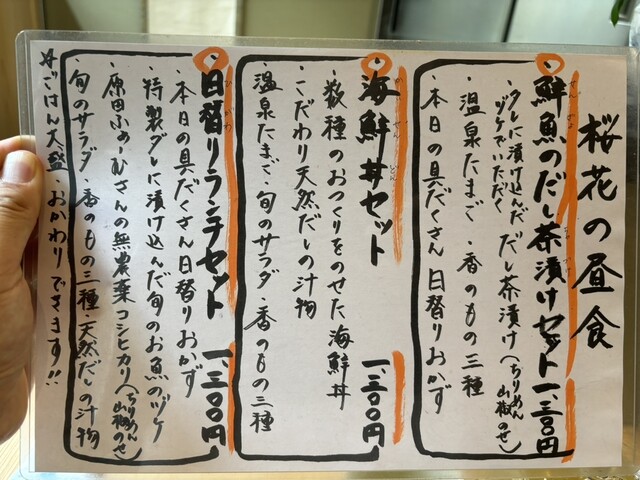 桜花の昼食
鮮魚のだし茶漬けセット 一、三〇〇円
・タレに漬け込んだ だし茶漬け(ちりめん山椒のせ)
ヅケでいただく
・温泉たまご・香のもの三種
・本日の具だくさん日替りおかず
海鮮丼セット 一、三〇〇円
・数種のおつくりをのせた海鮮丼
・こだわり天然だしの汁物
・温泉たまご・旬のサラダ・香のもの三種
日替りランチセット 一、三〇〇円
・本日の具だくさん日替りおかず
・特製ダレに漬け込んだ旬のお魚のヅケ
・原田ふぁーむさんの無農薬コシヒカリ(ちりめん山椒のせ)
・旬のサラダ・香のもの三種・天然だしの汁物
※ごはん大盛・おかわりできます!!